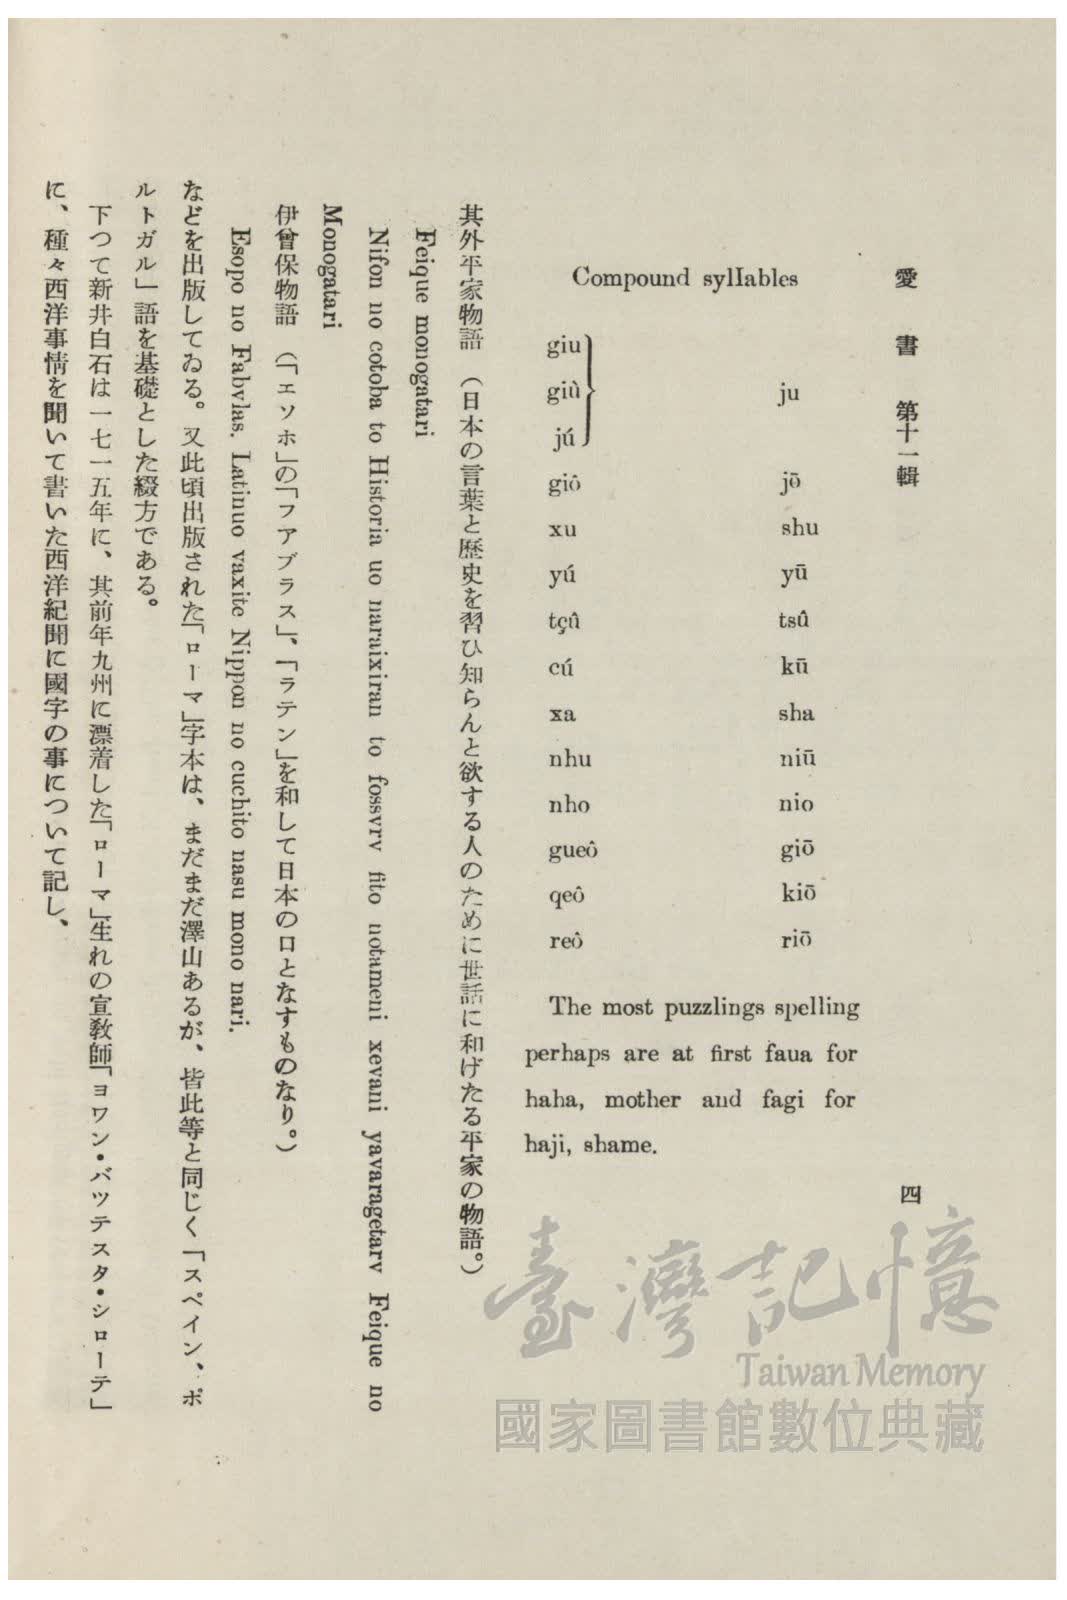 愛書 第十一輯
四
Compound syllables
giu
giù
jú
ju
giô jō
xu shu
yú yū
tçû tsû
cú kū
xa sha
nhu niū
nho nio
gueô giō
qeô kiō
reô riō
The most puzzlings spelling
perhaps are at first faua for
haha, mother and fagi for
haji, shame.
其外平家物語 (日本の言葉と歴史を習ひ知らんと欲する人のために世話に和げたる平家の物語。)
Feique monogatari
Nifon no cotoba to Historia uo naraixiran to fossvrv fito notameni xevani yavaragetarv Feique no
Monogatari
伊曾保物語 (「エソホ」の「フアブラス」、「ラテン」を和して日本の口となすものなり。)
Esopo no Fabvlas. Latinuo vaxite Nippon no cuchito nasu mono nari.
などを出版してゐる。又此頃出版された「ローマ」字本は、まだまだ澤山あるが、皆此等と同じく「スペイン、ポ
ルトガル」語を基礎とした綴方である。
下つて新井白石は一七一五年に、其前年九州に漂着した「ローマ」生れの宣教師「ヨワン・バツテスタ・シローテ」
に、種々西洋事情を聞いて書いた西洋紀聞に國字の事について記し、
臺灣記憶
Taiwan Memory
國家圖書館數位典藏